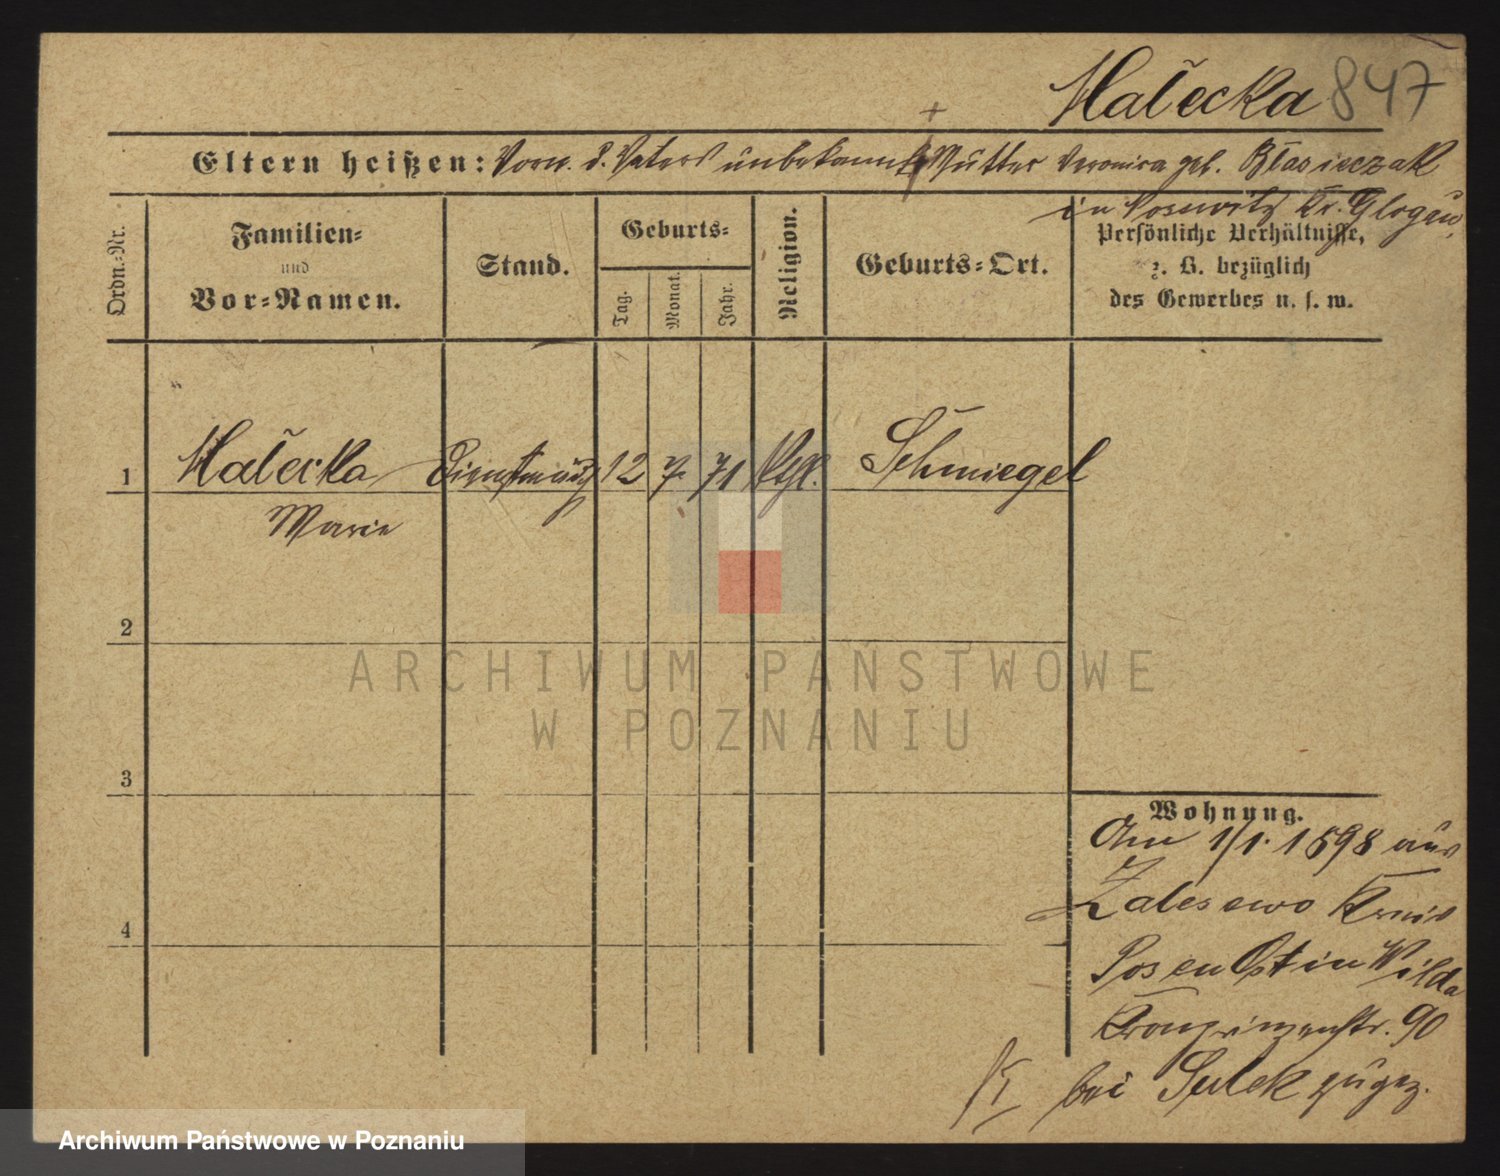 Małecka 847
Eltern heißen: Vorn. d. Vaters unbekannt Mutter Veronica geb. Błasieczak
in Kr. Glogau,
Ordn.-Nr.
Familien-
und
Vor-Namen.
Stand.
Geburts-
Tag.
Monat.
Jahr.
Religion.
Geburts-Ort.
Persönliche Verhältnisse,
z. B. bezüglich
des Gewerbes u. s. w.
1 Małecka Dienstmäd 12 7 71 Kth. Schmiegel
Marie
2
3
4
ARCHIWUM PAŃSTWOWE
W POZNANIU
Wohnung.
Am 1/1. 1898 aus
Zalesewo Kreis
Posen Ost in Wilda
Kronprinzenstr. 90
bei Sulek zugez.
Archiwum Państwowe w Poznaniu